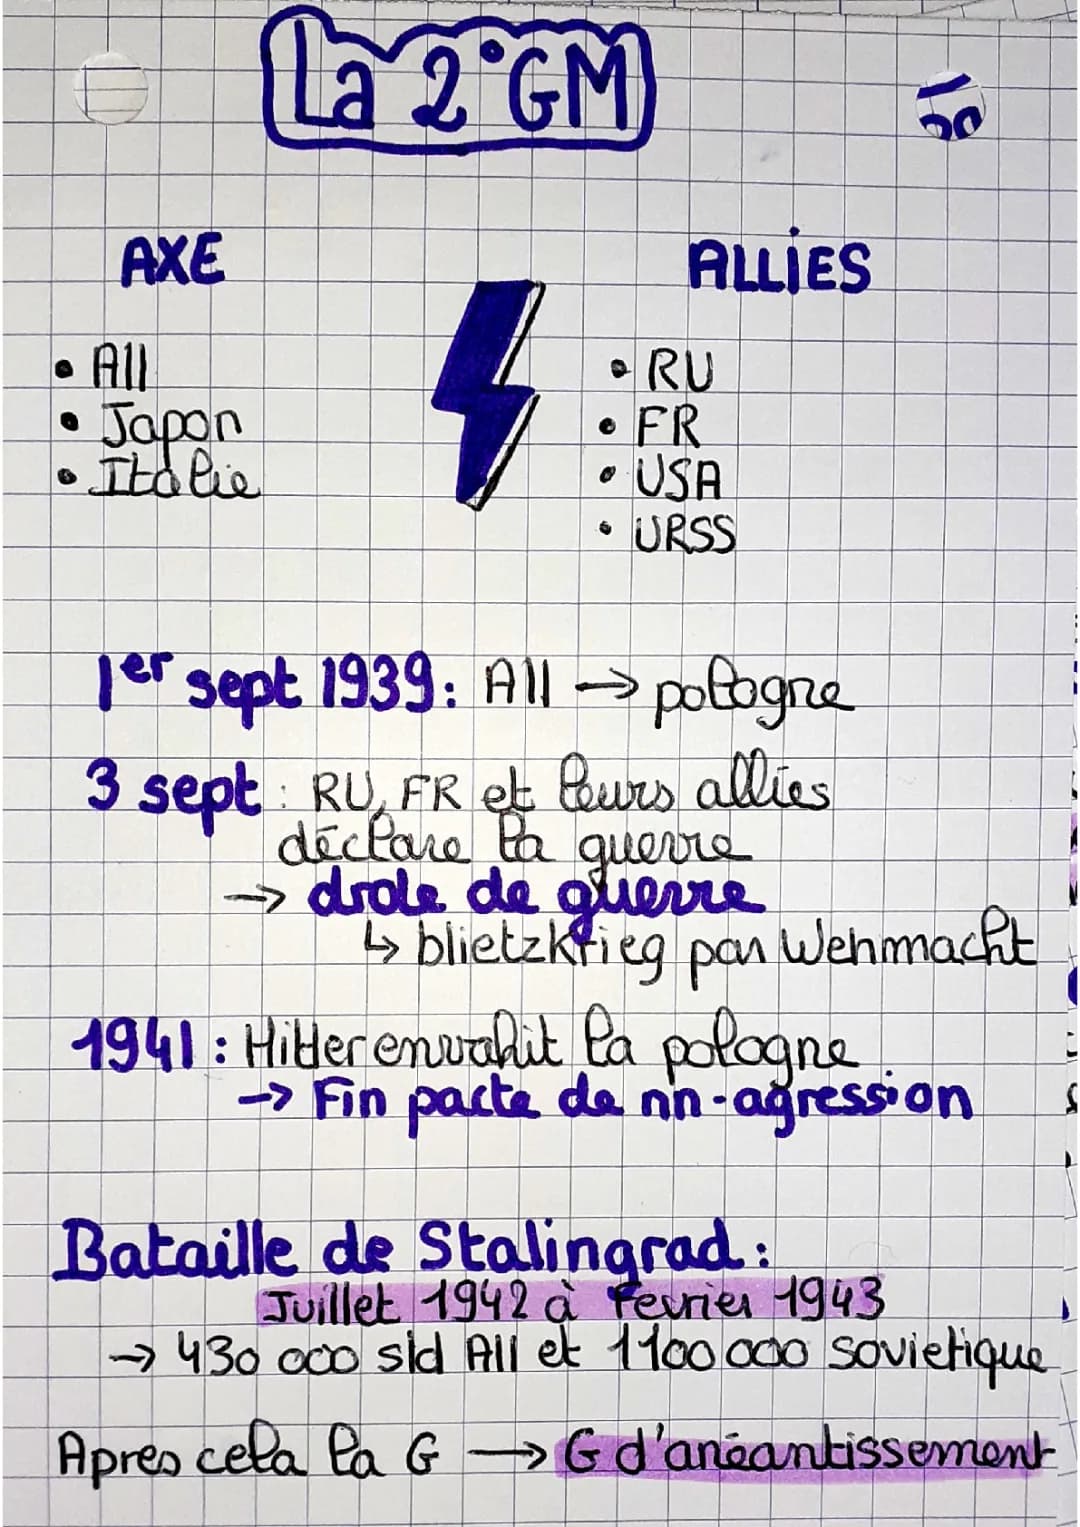 La 2°GM
AXE
ALLIES
• All
• Japon
• Italie
• RU
• FR
• USA
• URSS
1er sept 1939: All → pologne
3 sept : RU, FR et leurs allies
déclare la guerre
→ drole de guerre
↳ blietzkrieg par Wehrmacht
1941 : Hitler envahit la pologne
→ Fin pacte de nn-agression
Bataille de Stalingrad :
Juillet 1942 à Fevrier 1943
→ 430 000 sld All et 1100 000 sovietique
Apres cela la G → G d'anéantissement